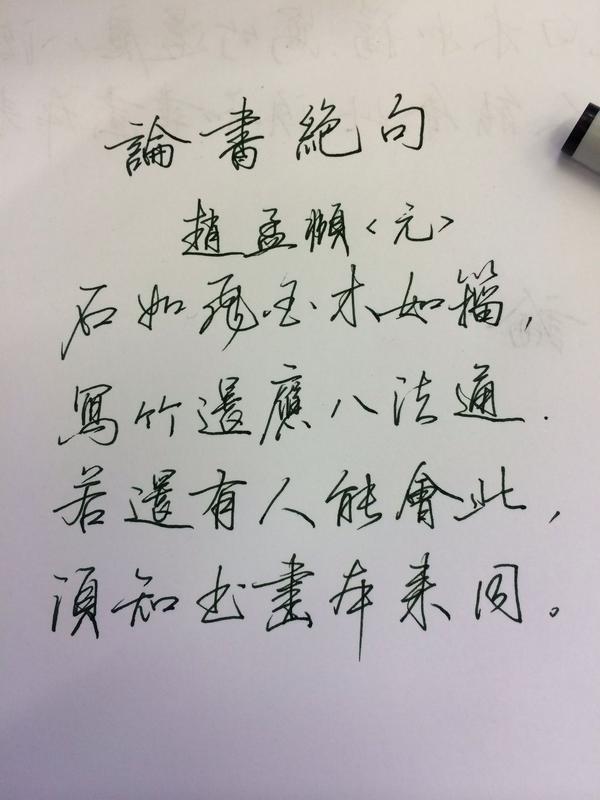 論書絕句
趙孟頫<元>
石如飛白木如籀,
寫竹還應八法通.
若還有人能會此,
須知书畫本來同。